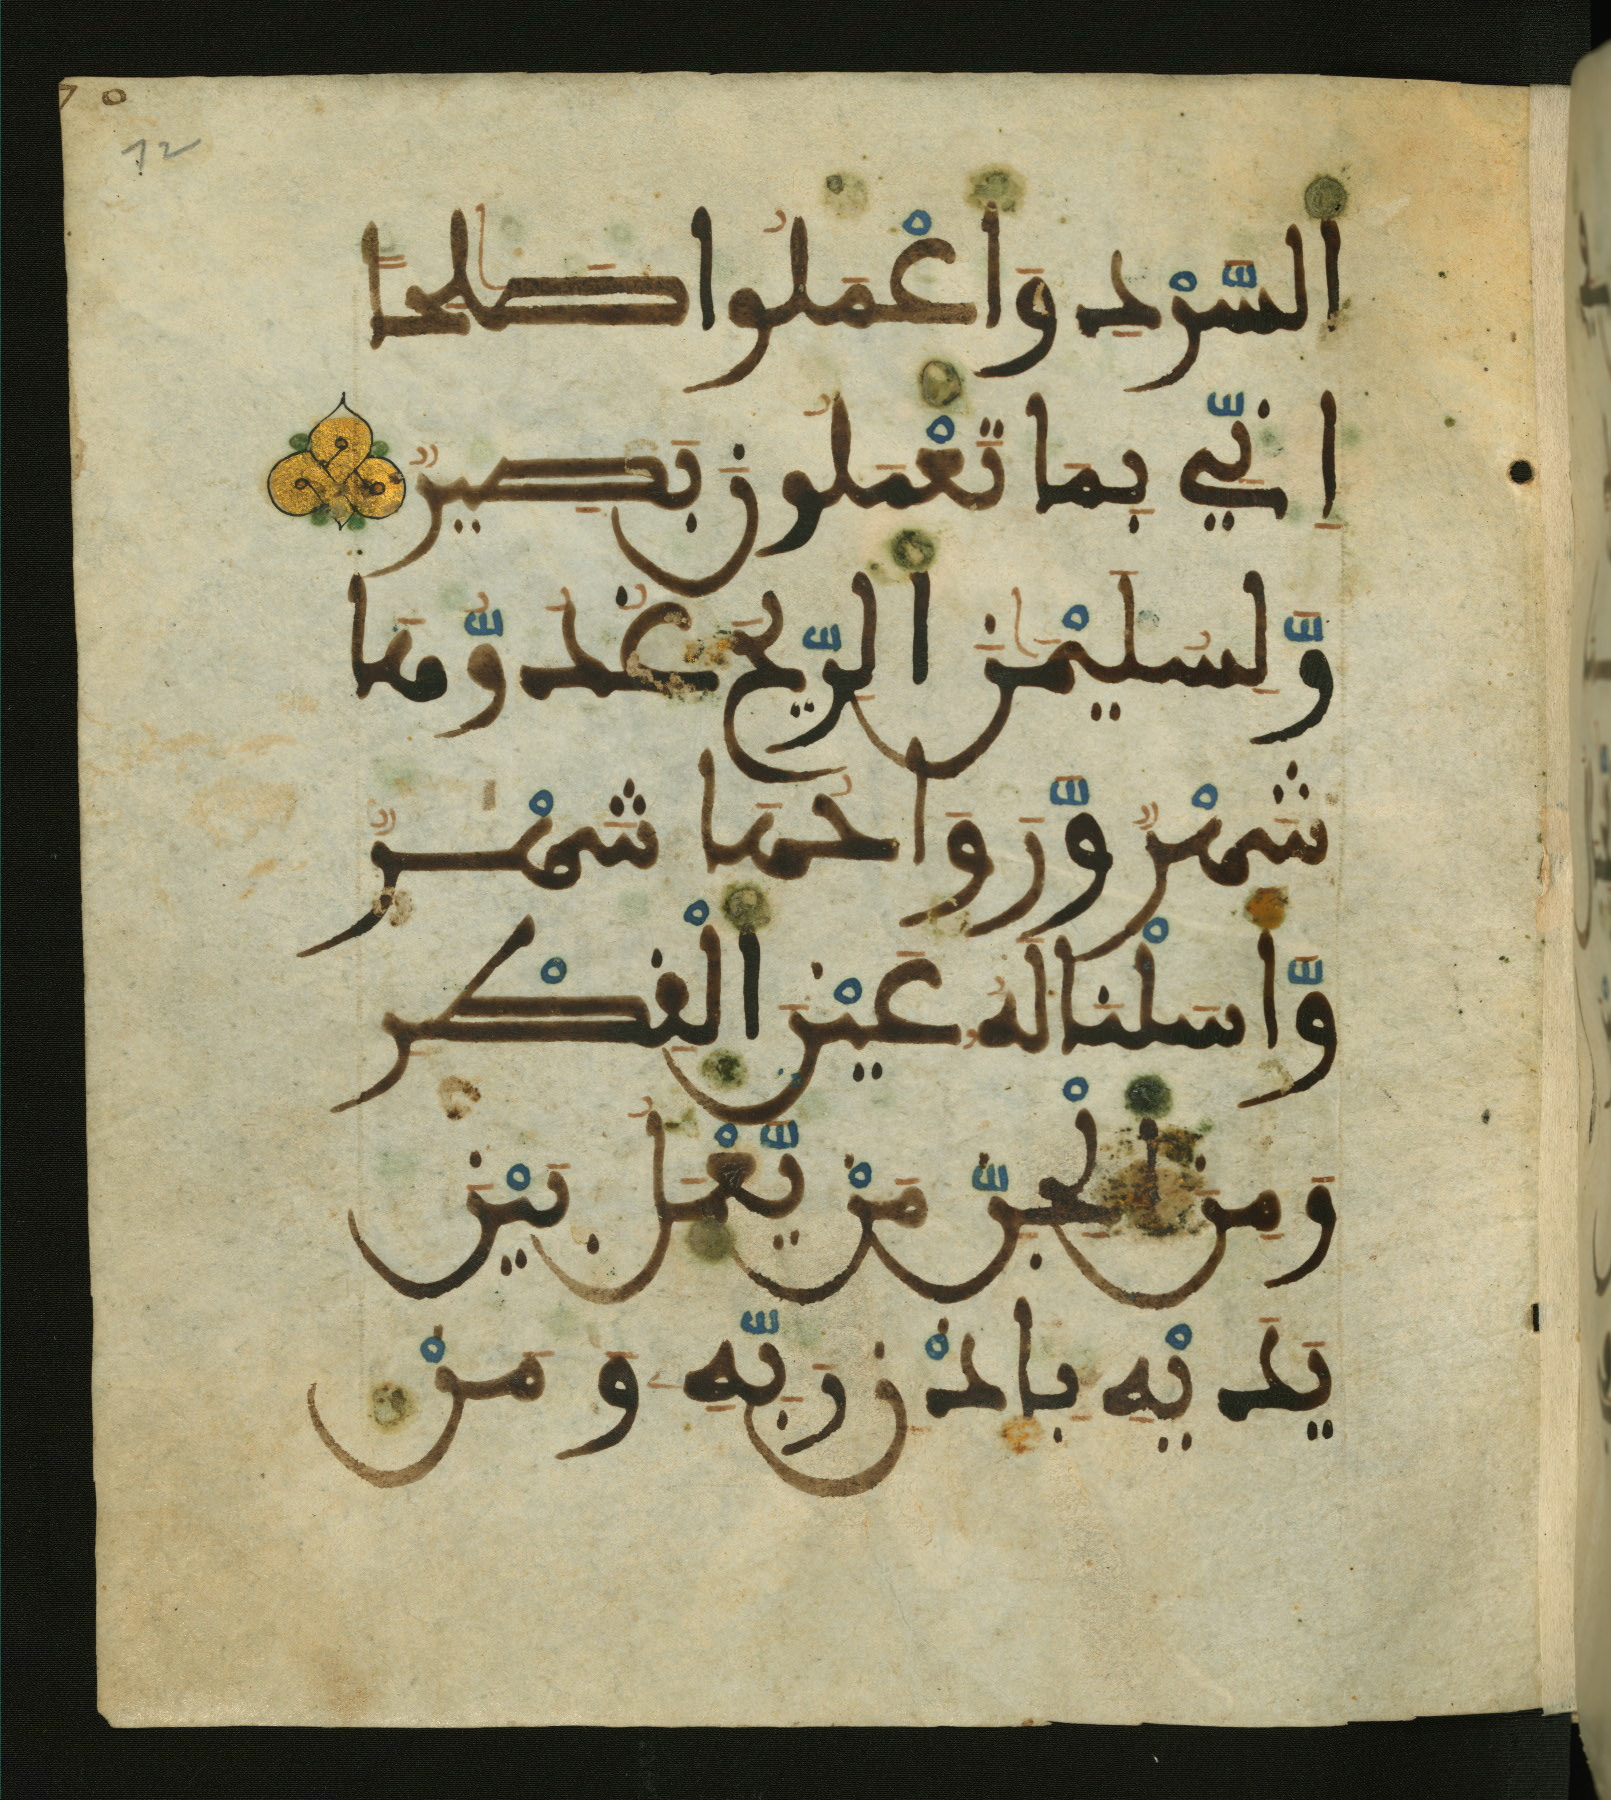 70
12
السَّرْدِ وَاعْمَلُوا صَٰلِحًا
اِنِّي بِمَا تَعْمَلُونَ بَصِيرٌ
وَّلِسُلَيْمَٰنَ الرِّيحَ غُدُوُّهَا
شَهْرٌ وَّرَوَاحُهَا شَهْرٌ
وَّاَسَلْنَا لَهُ عَيْنَ الْقِطْرِ
وَمِنَ الْجِنِّ مَنْ يَّعْمَلُ بَيْنَ
يَدَيْهِ بِاِذْنِ رَبِّهِ وَمَنْ